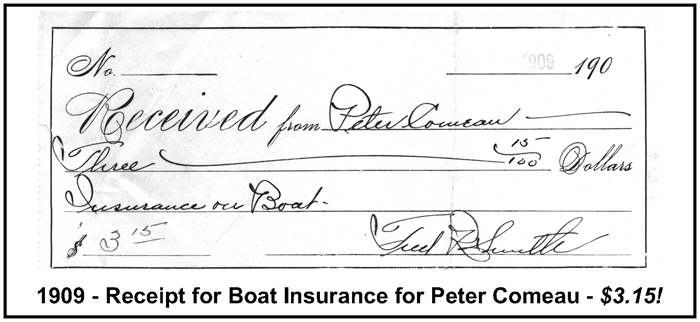 No. 1909 190
Received from Peter Comeau
Three 15/100 Dollars
Insurance on Boat -
$ 3 15 Fred B Smith
1909 - Receipt for Boat Insurance for Peter Comeau - $3.15!